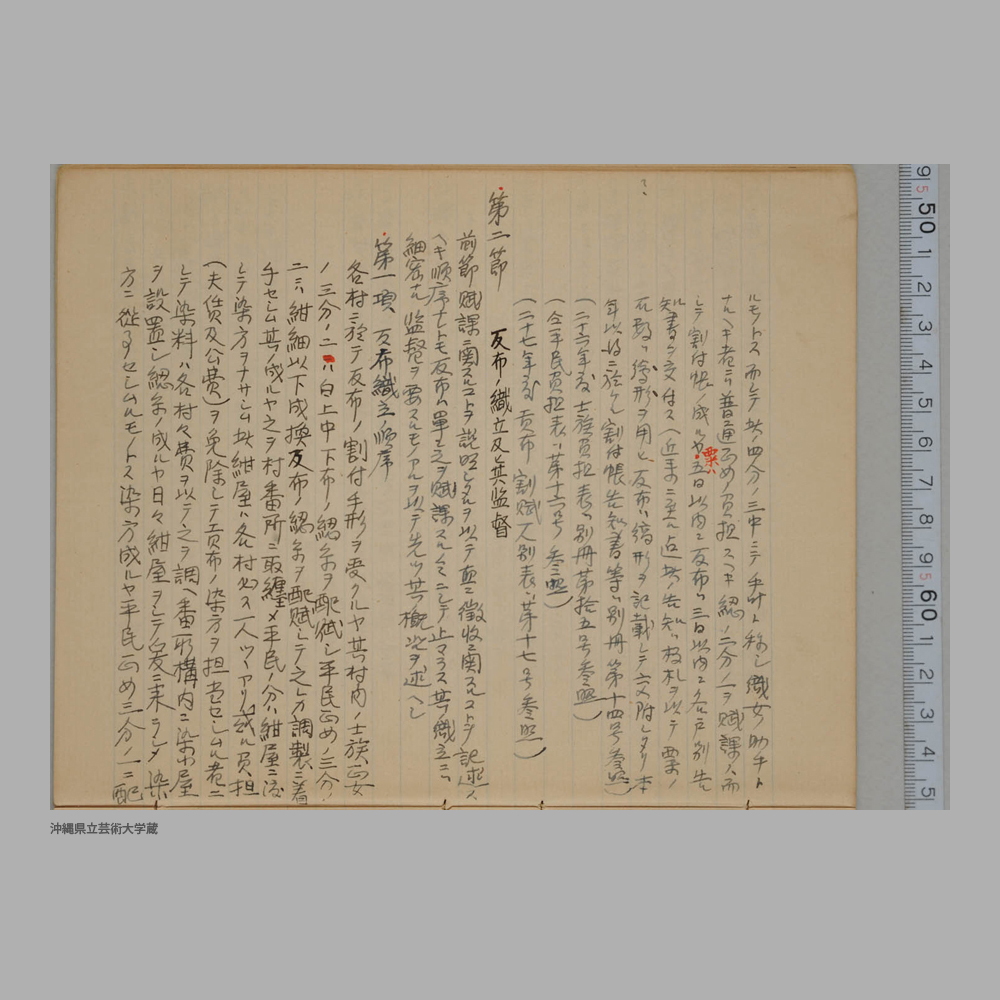 ルモノトス而シテ此ノ四分ノ三中ニテ手叶ト称シ織女ノ助手ト
ナルヘキ者ニハ普通正女ノ負担スヘキ綛ノ二分ノ一ヲ賦課ス而
シテ割付帳ノ成ルヤ粟ハ五日以内ニ反布ハ三日以内ニ各戸別告
知書ヲ交付ス(近年ニ至ル迄此告知ハ板札ヲ以テ粟ノ
石数ハ縞形ヲ用ヒ反布ハ縞形ヲ記載シテ交附シタリ本
年以後ニ於ケル割付帳告知書等ハ別冊第十四号参照)
(二十六年度士族負担表ハ別冊第拾五号参照)
(仝平民負担表ハ第十六号参照)
(二十七年度貢布割賦人別表ハ第十七号参照)
第二節 反布ノ織立及ヒ其監督
前節賦課ニ関スルコトヲ説明シタルヲ以テ直ニ徴収ニ関スルコトヲ記述ス
ヘキ順序ナレトモ反布ハ単ニ之ヲ賦課スルノミニシテ止マラス其織立ニハ
細密ナル監督ヲ要スルモノアルヲ以テ先ツ其概況ヲ述ヘン
第一項 反布織立ノ順席
各村ニ於テ反布ノ割付手形ヲ受クルヤ其村内ノ士族正女
ノ三分ノ二ハ白上中下布ノ綛糸ヲ配賦シ平民正女ノ三分ノ
二ニハ紺細以下成換反布ノ綛糸ヲ配賦シテ之レカ調製ニ着
手セシム其ノ成ルヤ之ヲ村番所ニ取纏メ平民ノ分ハ紺屋ニ渡
シテ染方ヲナサシム此紺屋ハ各村必ス一人ツヽアリ或ル負担
(夫賃及公費)ヲ免除シテ貢布ノ染方ヲ担当セシムル者ニ
シテ染料ハ各村々費ヲ以テ之ヲ調ヘ番所構内ニ染小屋
ヲ設置シ綛糸ノ成ルヤ日々紺屋ヲシテ爰ニ来ラシメ染
方ニ従事セシムルモノトス染方成ルヤ平民正女三分ノ一ニ配
沖縄県立芸術大学蔵